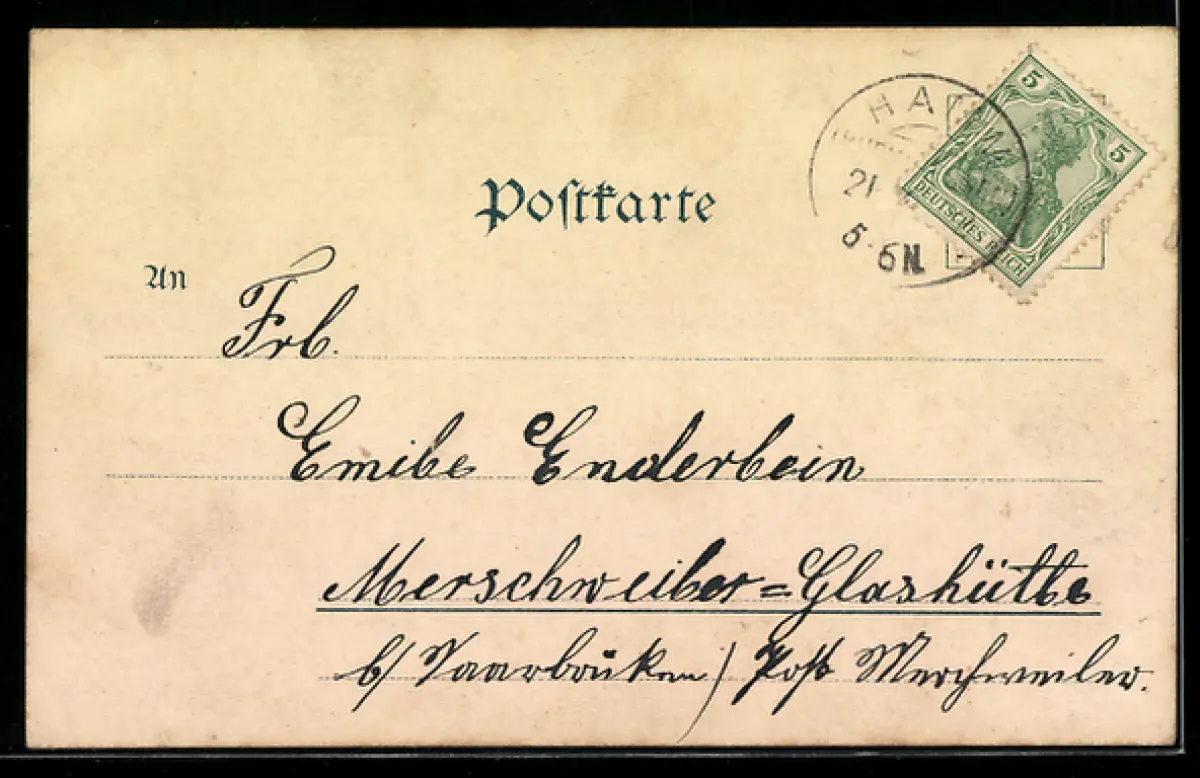 Postkarte
HA
21
5-6N.
5
5
DEUTSCHES REICH
An
Frl.
Emilie Enderlein
Merschweiler=Glashütte
b/ Saarbrücken) Post Merchweiler.